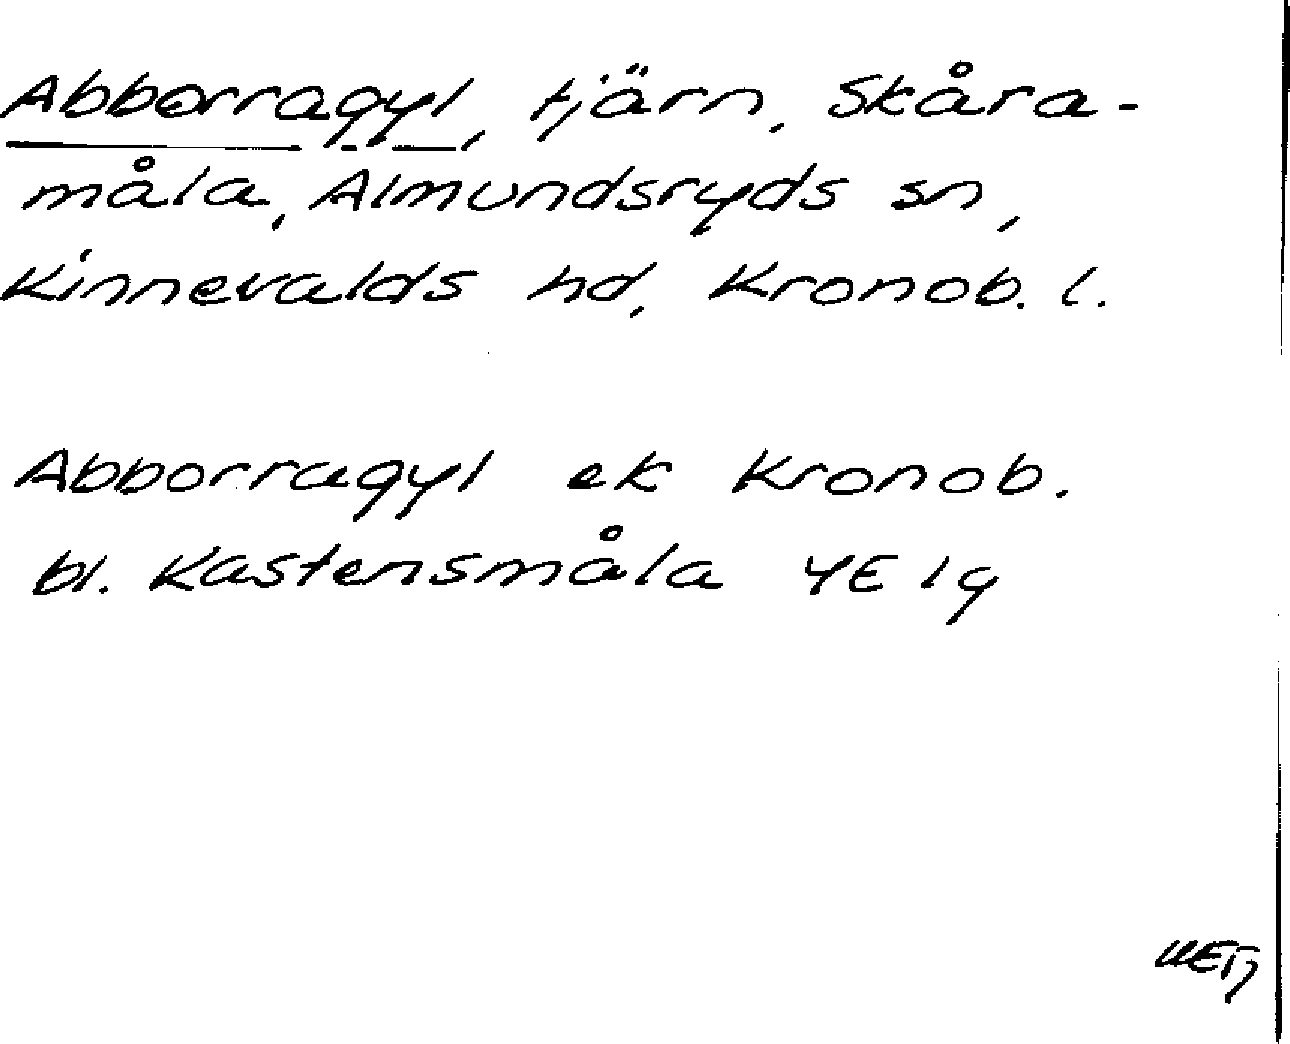 Abborragyl, tjärn, Skåra-
måla, Almundsryds sn,
Kinnevalds hd, Kronob. l.
Abborragyl ek Kronob.
bl. Kastensmåla 4E 1g